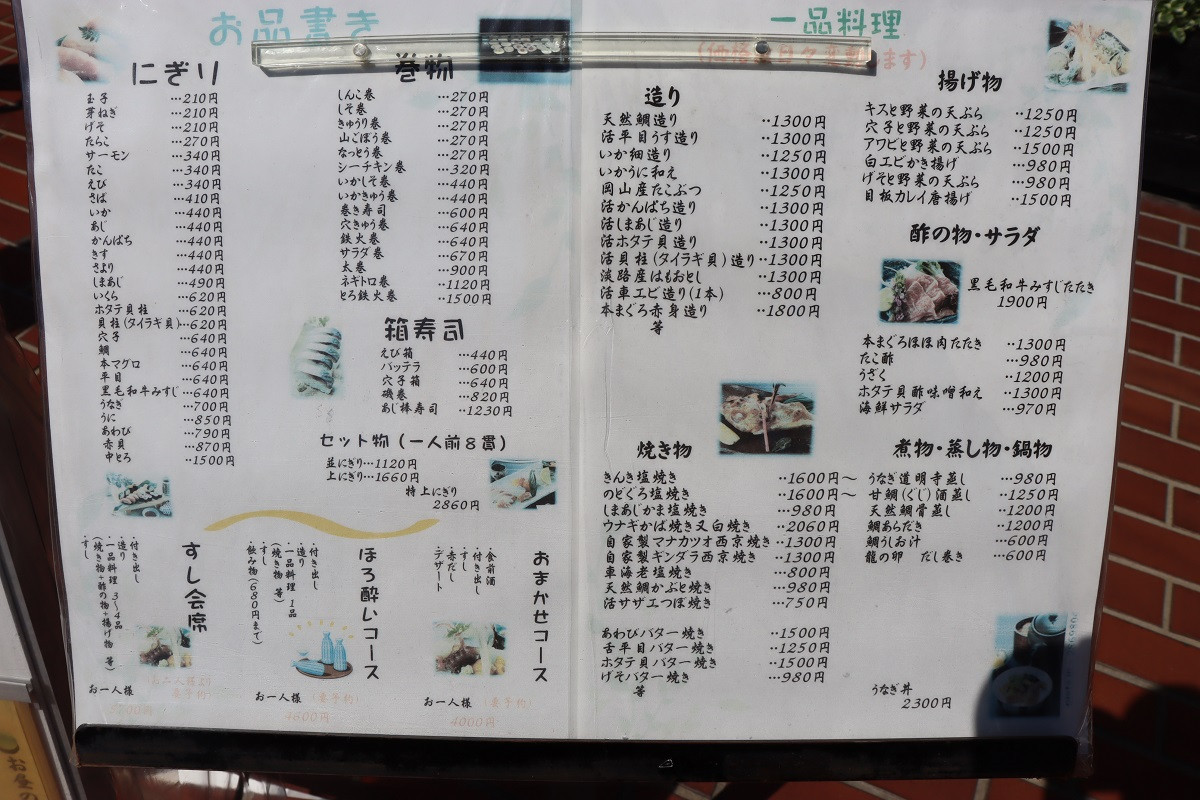 お品書き
にぎり
玉子 …210円
芽ねぎ …210円
げそ …210円
たらこ …270円
サーモン …340円
たこ …340円
えび …340円
さば …410円
いか …440円
あじ …440円
かんぱち …440円
きす …440円
さより …440円
しまあじ …490円
いくら …620円
ホタテ貝柱 …620円
貝柱(タイラギ貝)…620円
穴子 …640円
鯛 …640円
本マグロ …640円
平目 …640円
黒毛和牛みすじ …640円
うなぎ …700円
うに …850円
あわび …790円
赤貝 …870円
中とろ …1500円
巻物
しんこ巻 …270円
しそ巻 …270円
きゅうり巻 …270円
山ごぼう巻 …270円
なっとう巻 …270円
シーチキン巻 …320円
いかしそ巻 …440円
いかきゅう巻 …440円
巻き寿司 …600円
穴きゅう巻 …640円
鉄火巻 …640円
サラダ巻 …670円
太巻 …900円
ネギトロ巻 …1120円
とろ鉄火巻 …1500円
箱寿司
えび箱 …440円
バッテラ …600円
穴子箱 …640円
磯巻 …820円
あじ棒寿司 …1230円
セット物(一人前8貫)
並にぎり…1120円
上にぎり…1660円
特上にぎり
2860円
おまかせコース
・食前酒
・付き出し
・すし
・赤だし
・デザート
お一人様 (要予約)
4000円
ほろ酔いコース
・付き出し
・造り
・一品料理 1品
(焼き物 等)
・すし
・飲み物(680円まで)
お一人様 (要予約)
4600円
すし会席
・付き出し
・造り
・一品料理 3〜4品
(焼き物+酢の物+揚げ物 等)
・すし
お二人様より
要予約
お一人様
一品料理
造り
天然鯛造り ‥1300円
活平目うす造り ‥1300円
いか細造り ‥1250円
いかうに和え ‥1300円
岡山産たこぶつ ‥1250円
活かんぱち造り ‥1300円
活しまあじ造り ‥1300円
活ホタテ貝造り ‥1300円
活貝柱(タイラギ貝)造り‥1300円
淡路産はもおとし ‥1300円
活車エビ造り(1本) …800円
本まぐろ赤身造り ‥1800円
等
焼き物
きんき塩焼き ‥1600円〜
のどぐろ塩焼き ‥1600円〜
しまあじかま塩焼き …980円
ウナギかば焼き又白焼き ‥2060円
自家製マナカツオ西京焼き ‥1300円
自家製ギンダラ西京焼き ‥1300円
車海老塩焼き …800円
天然鯛かぶと焼き …980円
活サザエつぼ焼き …750円
あわびバター焼き ‥1500円
舌平目バター焼き ‥1250円
ホタテ貝バター焼き ‥1500円
げそバター焼き …980円
等
揚げ物
キスと野菜の天ぷら ‥1250円
穴子と野菜の天ぷら ‥1250円
アワビと野菜の天ぷら ‥1500円
白エビかき揚げ …980円
げそと野菜の天ぷら …980円
目板カレイ唐揚げ ‥1500円
酢の物・サラダ
黒毛和牛みすじたたき
1900円
本まぐろほほ肉たたき ‥1300円
たこ酢 …980円
うざく ‥1200円
ホタテ貝酢味噌和え ‥1300円
海鮮サラダ …970円
煮物・蒸し物・鍋物
うなぎ道明寺蒸し …980円
甘鯛(ぐじ)酒蒸し ‥1250円
天然鯛骨蒸し ‥1200円
鯛あらだき ‥1200円
鯛うしお汁 …600円
龍の卵 だし巻き …600円
うなぎ丼
2300円
お昼の